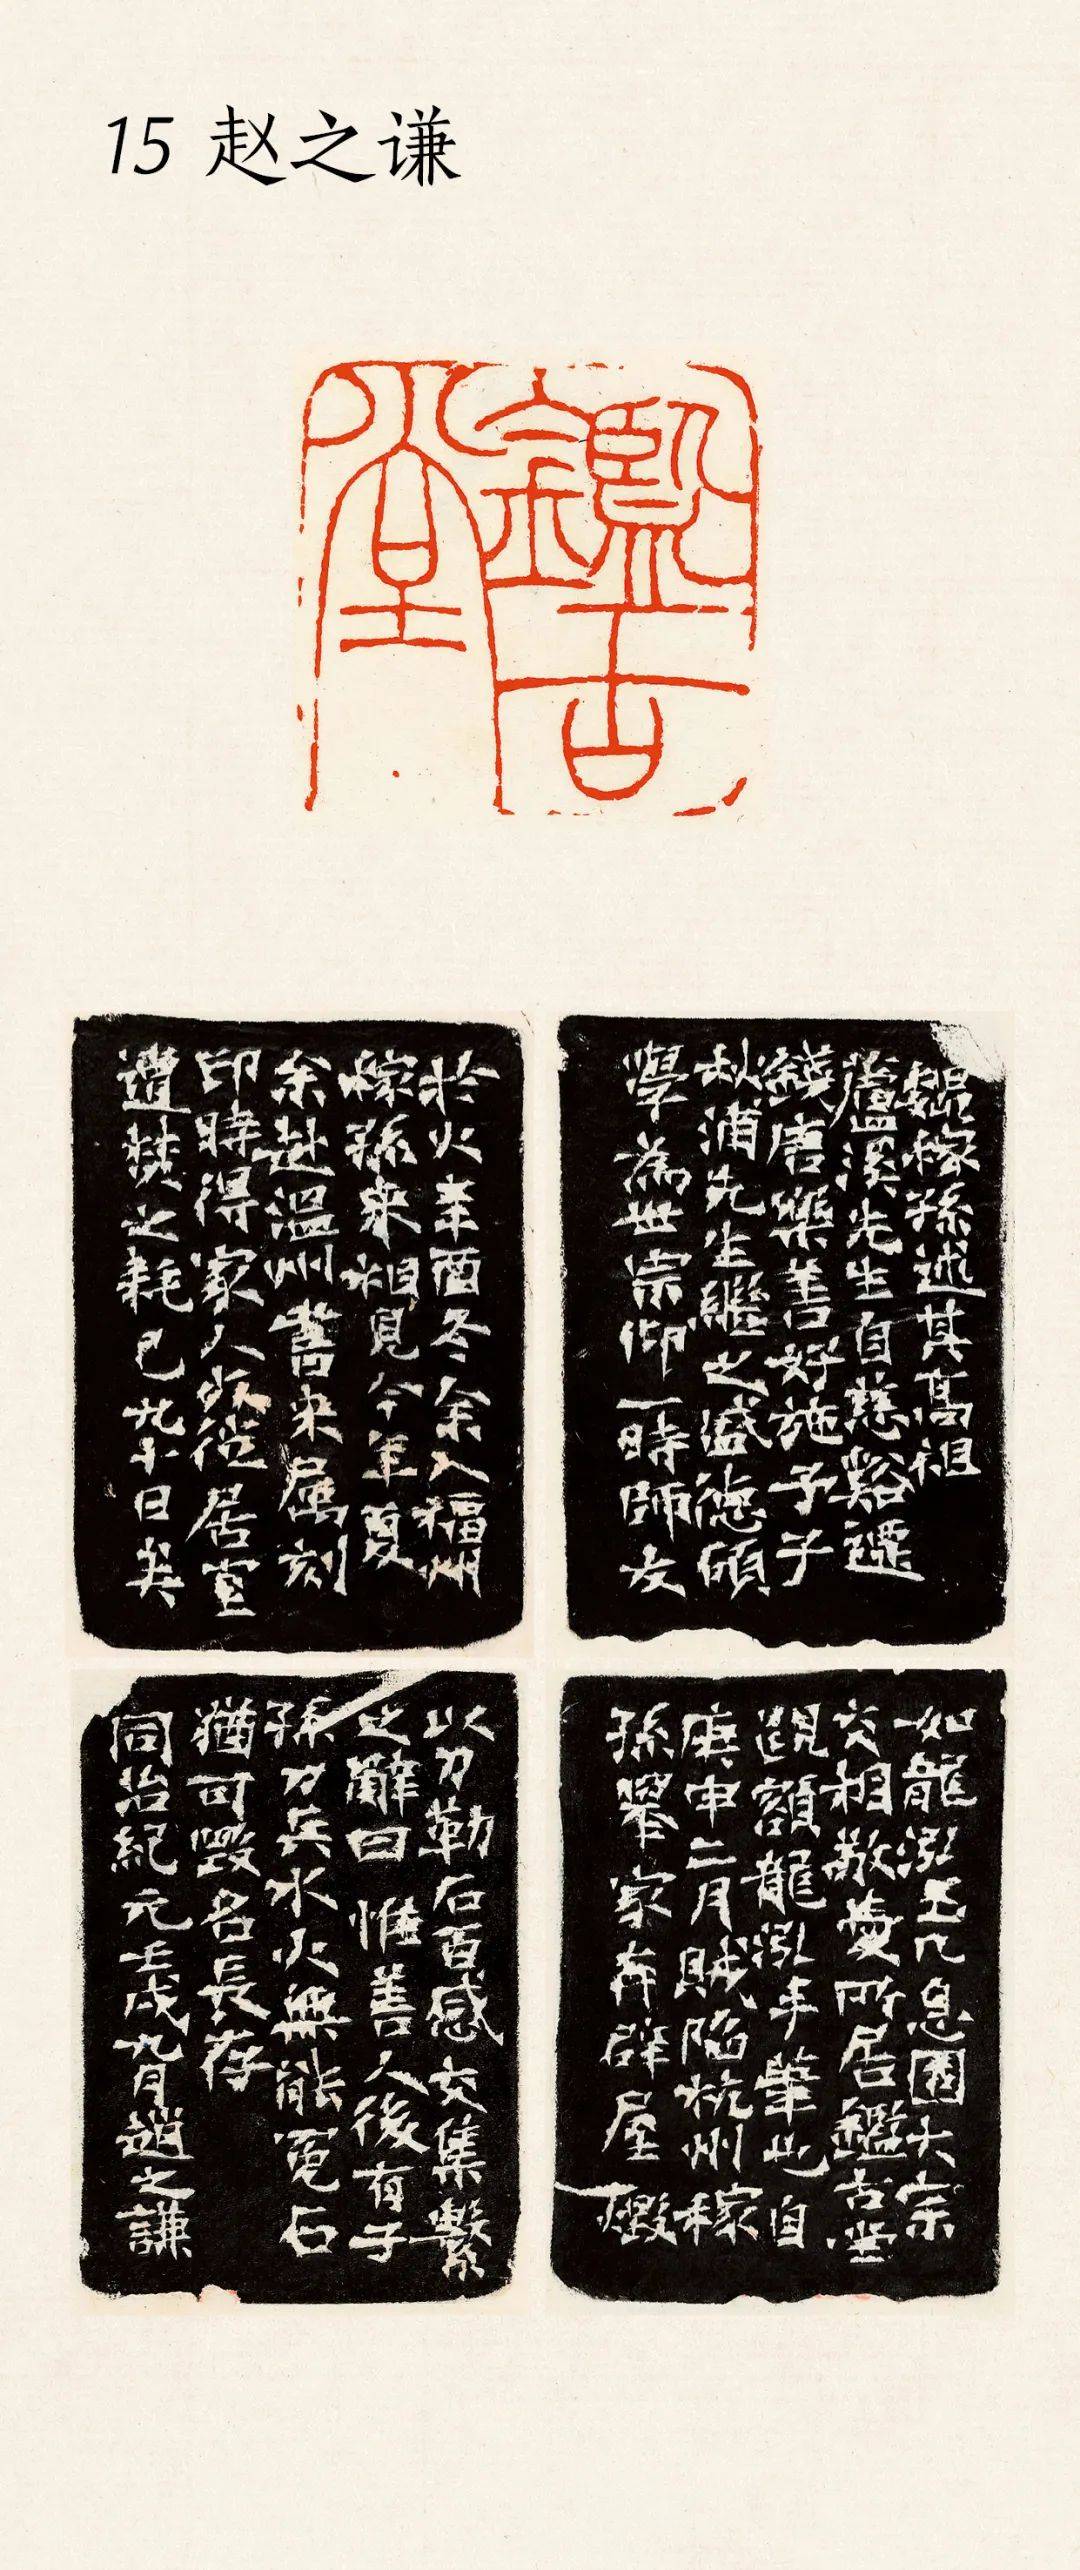 15 赵之谦
鑑古堂
魏稼孫述其高祖
蘆溪先生自慈谿遷
錢唐樂善好施予子
秋浦先生繼之盛德碩
學為世宗仰一時師友
如龍泓玉几息園大宗
交相敬愛所居鑑古堂
題額龍泓手筆也自
庚申二月賊陷杭州稼
孫舉家奔辟屋燬
於火辛酉冬余入福州
稼孫來相見今年夏
余赴溫州書來屬刻
印時得家人死徙居室
遭焚之耗已九十日矣
以刀勒石百感交集繫
之辭曰惟善人後有子
孫刀兵水火無能冤石
猶可毀名長存
同治紀元壬戌九月趙之謙